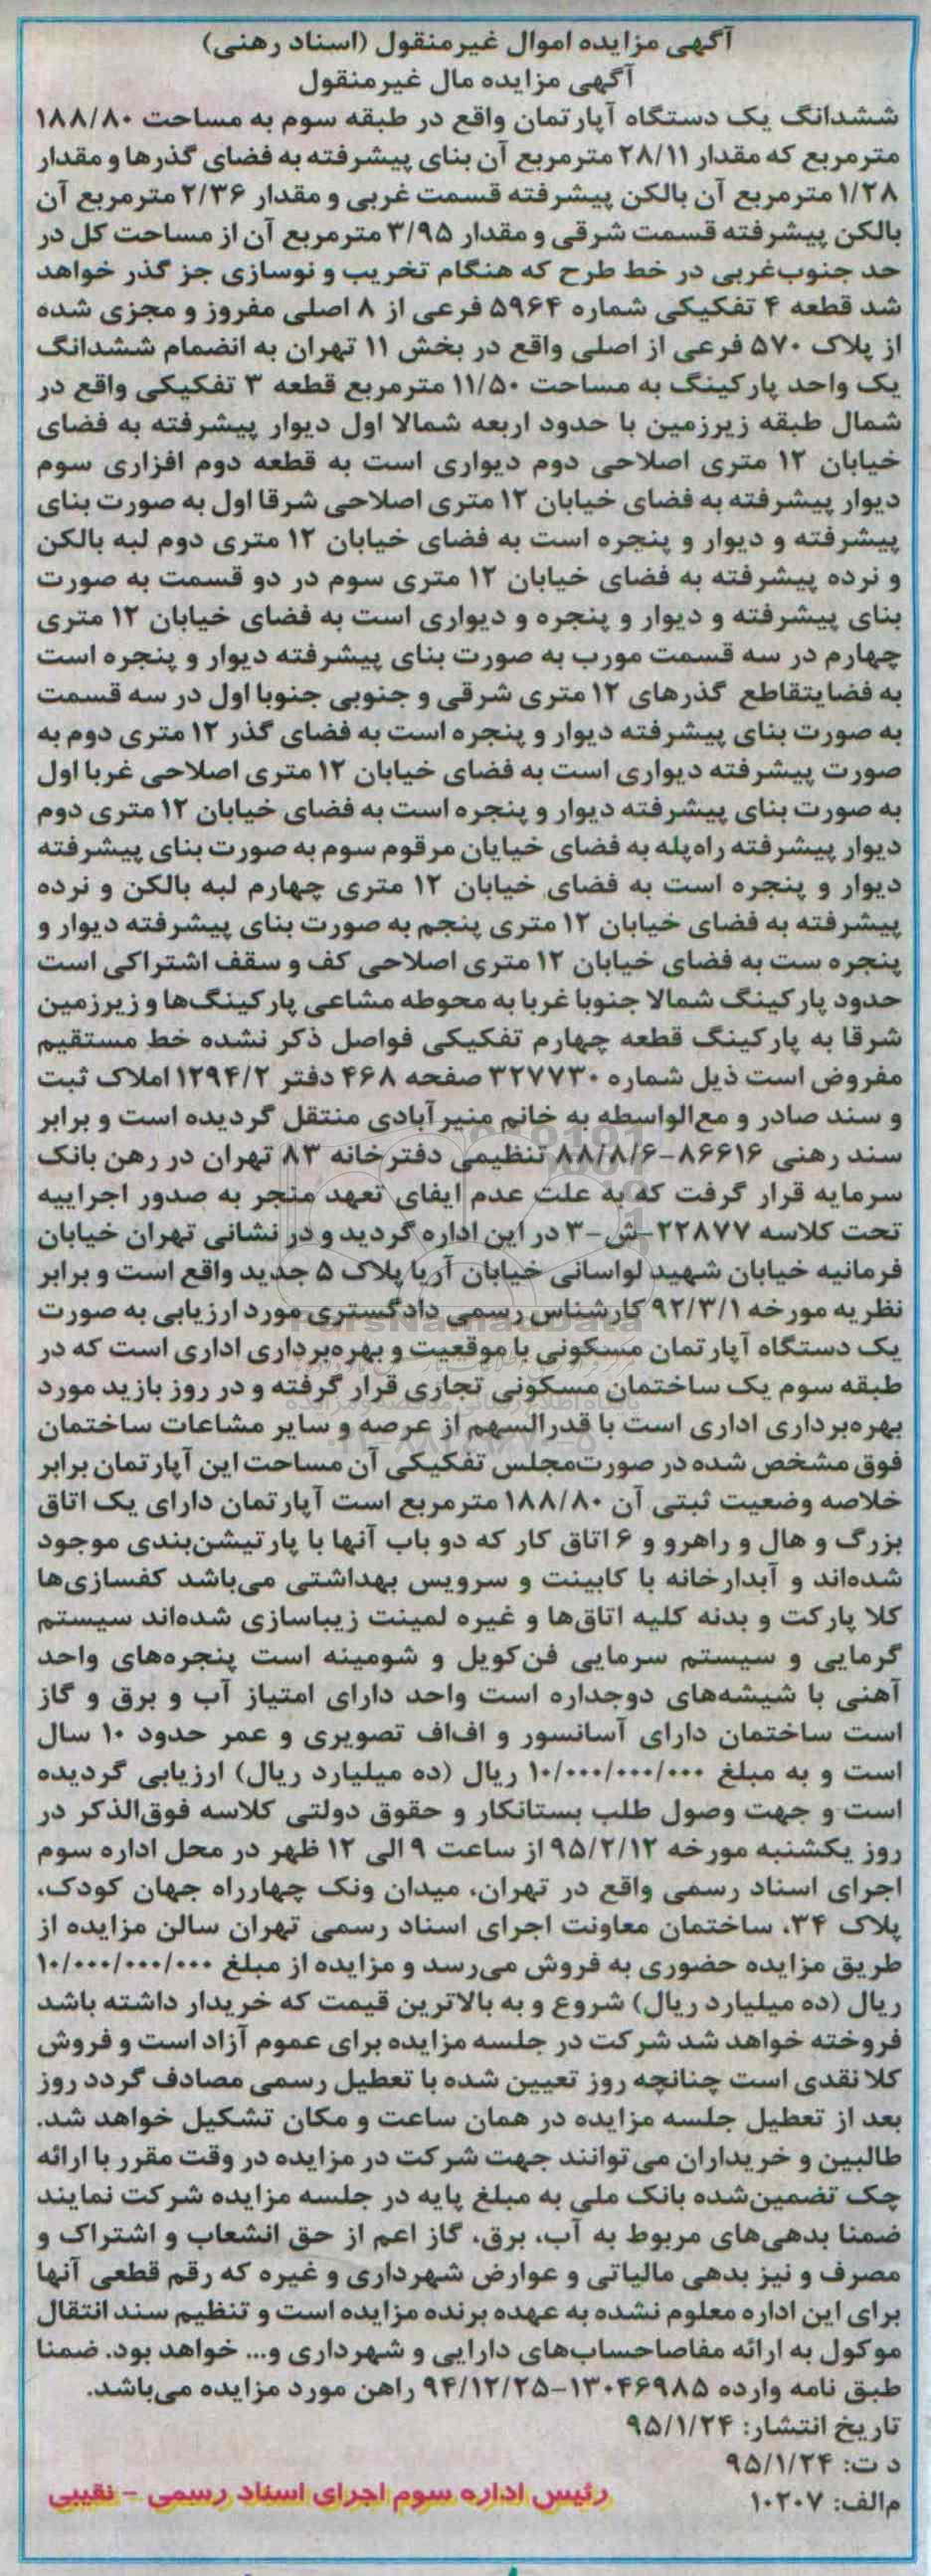 آگهی مزایده اموال غیرمنقول (اسناد رهنی)
آگهی مزایده مال غیرمنقول
ششدانگ یک دستگاه آپارتمان واقع در طبقه سوم به مساحت ۱۸۸/۸۰
مترمربع که مقدار ۲۸/۱۱ مترمربع آن بنای پیشرفته به فضای گذرها و مقدار
۱/۲۸ مترمربع آن بالکن پیشرفته قسمت غربی و مقدار ۲/۳۶ مترمربع آن
بالکن پیشرفته قسمت شرقی و مقدار ۳/۹۵ مترمربع آن از مساحت کل در
حد جنوب‌غربی در خط طرح که هنگام تخریب و نوسازی جز گذر خواهد
شد قطعه ۴ تفکیکی شماره ۵۹۶۴ فرعی از ۸ اصلی مفروز و مجزی شده
از پلاک ۵۷۰ فرعی از اصلی واقع در بخش ۱۱ تهران به انضمام ششدانگ
یک واحد پارکینگ به مساحت ۱۱/۵۰ مترمربع قطعه ۳ تفکیکی واقع در
شمال طبقه زیرزمین با حدود اربعه شمالا اول دیوار پیشرفته به فضای
خیابان ۱۲ متری اصلاحی دوم دیواری است به قطعه دوم افزاری سوم
دیوار پیشرفته به فضای خیابان ۱۲ متری اصلاحی شرقا اول به صورت بنای
پیشرفته و دیوار و پنجره است به فضای خیابان ۱۲ متری دوم لبه بالکن
و نرده پیشرفته به فضای خیابان ۱۲ متری سوم در دو قسمت به صورت
بنای پیشرفته و دیوار و پنجره و دیواری است به فضای خیابان ۱۲ متری
چهارم در سه قسمت مورب به صورت بنای پیشرفته دیوار و پنجره است
به فضایتقاطع گذرهای ۱۲ متری شرقی و جنوبی جنوبا اول در سه قسمت
به صورت بنای پیشرفته دیوار و پنجره است به فضای گذر ۱۲ متری دوم به
صورت پیشرفته دیواری است به فضای خیابان ۱۲ متری اصلاحی غربا اول
به صورت بنای پیشرفته دیوار و پنجره است به فضای خیابان ۱۲ متری دوم
دیوار پیشرفته راه‌پله به فضای خیابان مرقوم سوم به صورت بنای پیشرفته
دیوار و پنجره است به فضای خیابان ۱۲ متری چهارم لبه بالکن و نرده
پیشرفته به فضای خیابان ۱۲ متری پنجم به صورت بنای پیشرفته دیوار و
پنجره ست به فضای خیابان ۱۲ متری اصلاحی کف و سقف اشتراکی است
حدود پارکینگ شمالا جنوبا غربا به محوطه مشاعی پارکینگ‌ها و زیرزمین
شرقا به پارکینگ قطعه چهارم تفکیکی فواصل ذکر نشده خط مستقیم
مفروض است ذیل شماره ۳۲۷۷۳۰ صفحه ۴۶۸ دفتر ۱۲۹۴/۲ املاک ثبت
و سند صادر و مع‌الواسطه به خانم منیرآبادی منتقل گردیده است و برابر
سند رهنی ۸۶۶۱۶-۸۸/۸/۶ تنظیمی دفترخانه ۸۳ تهران در رهن بانک
سرمایه قرار گرفت که به علت عدم ایفای تعهد منجر به صدور اجراییه
تحت کلاسه ۲۲۸۷۷-ش-۳ در این اداره گردید و در نشانی تهران خیابان
فرمانیه خیابان شهید لواسانی خیابان آریا پلاک ۵ جدید واقع است و برابر
نظریه مورخه ۹۲/۳/۱ کارشناس رسمی دادگستری مورد ارزیابی به صورت
یک دستگاه آپارتمان مسکونی با موقعیت و بهره‌برداری اداری است که در
طبقه سوم یک ساختمان مسکونی تجاری قرار گرفته و در روز بازید مورد
بهره‌برداری اداری است با قدرالسهم از عرصه و سایر مشاعات ساختمان
فوق مشخص شده در صورت‌مجلس تفکیکی آن مساحت این آپارتمان برابر
خلاصه وضعیت ثبتی آن ۱۸۸/۸۰ مترمربع است آپارتمان دارای یک اتاق
بزرگ و هال و راهرو و ۶ اتاق کار که دو باب آنها با پارتیشن‌بندی موجود
شده‌اند و آبدارخانه با کابینت و سرویس بهداشتی می‌باشد کفسازی‌ها
کلا پارکت و بدنه کلیه اتاق‌ها و غیره لمینت زیباسازی شده‌اند سیستم
گرمایی و سیستم سرمایی فن‌کویل و شومینه است پنجره‌های واحد
آهنی با شیشه‌های دوجداره است واحد دارای امتیاز آب و برق و گاز
است ساختمان دارای آسانسور و اف‌اف تصویری و عمر حدود ۱۰ سال
است و به مبلغ ۱۰/۰۰۰/۰۰۰/۰۰۰ ریال (ده میلیارد ریال) ارزیابی گردیده
است و جهت وصول طلب بستانکار و حقوق دولتی کلاسه فوق‌الذکر در
روز یکشنبه مورخه ۹۵/۲/۱۲ از ساعت ۹ الی ۱۲ ظهر در محل اداره سوم
اجرای اسناد رسمی واقع در تهران، میدان ونک چهارراه جهان کودک،
پلاک ۳۴، ساختمان معاونت اجرای اسناد رسمی تهران سالن مزایده از
طریق مزایده حضوری به فروش می‌رسد و مزایده از مبلغ ۱۰/۰۰۰/۰۰۰/۰۰۰
ریال (ده میلیارد ریال) شروع و به بالاترین قیمت که خریدار داشته باشد
فروخته خواهد شد شرکت در جلسه مزایده برای عموم آزاد است و فروش
کلا نقدی است چنانچه روز تعیین شده با تعطیل رسمی مصادف گردد روز
بعد از تعطیل جلسه مزایده در همان ساعت و مکان تشکیل خواهد شد.
طالبین و خریداران می‌توانند جهت شرکت در مزایده در وقت مقرر با ارائه
چک تضمین‌شده بانک ملی به مبلغ پایه در جلسه مزایده شرکت نمایند
ضمنا بدهی‌های مربوط به آب، برق، گاز اعم از حق انشعاب و اشتراک و
مصرف و نیز بدهی مالیاتی و عوارض شهرداری و غیره که رقم قطعی آنها
برای این اداره معلوم نشده به عهده برنده مزایده است و تنظیم سند انتقال
موکول به ارائه مفاصاحساب‌های دارایی و شهرداری و... خواهد بود. ضمنا
طبق نامه وارده ۱۳۰۴۶۹۸۵-۹۴/۱۲/۲۵ راهن مورد مزایده می‌باشد.
تاریخ انتشار: ۹۵/۱/۲۴
د ت: ۹۵/۱/۲۴
م‌الف: ۱۰۲۰۷
رئیس اداره سوم اجرای اسناد رسمی - نقیبی